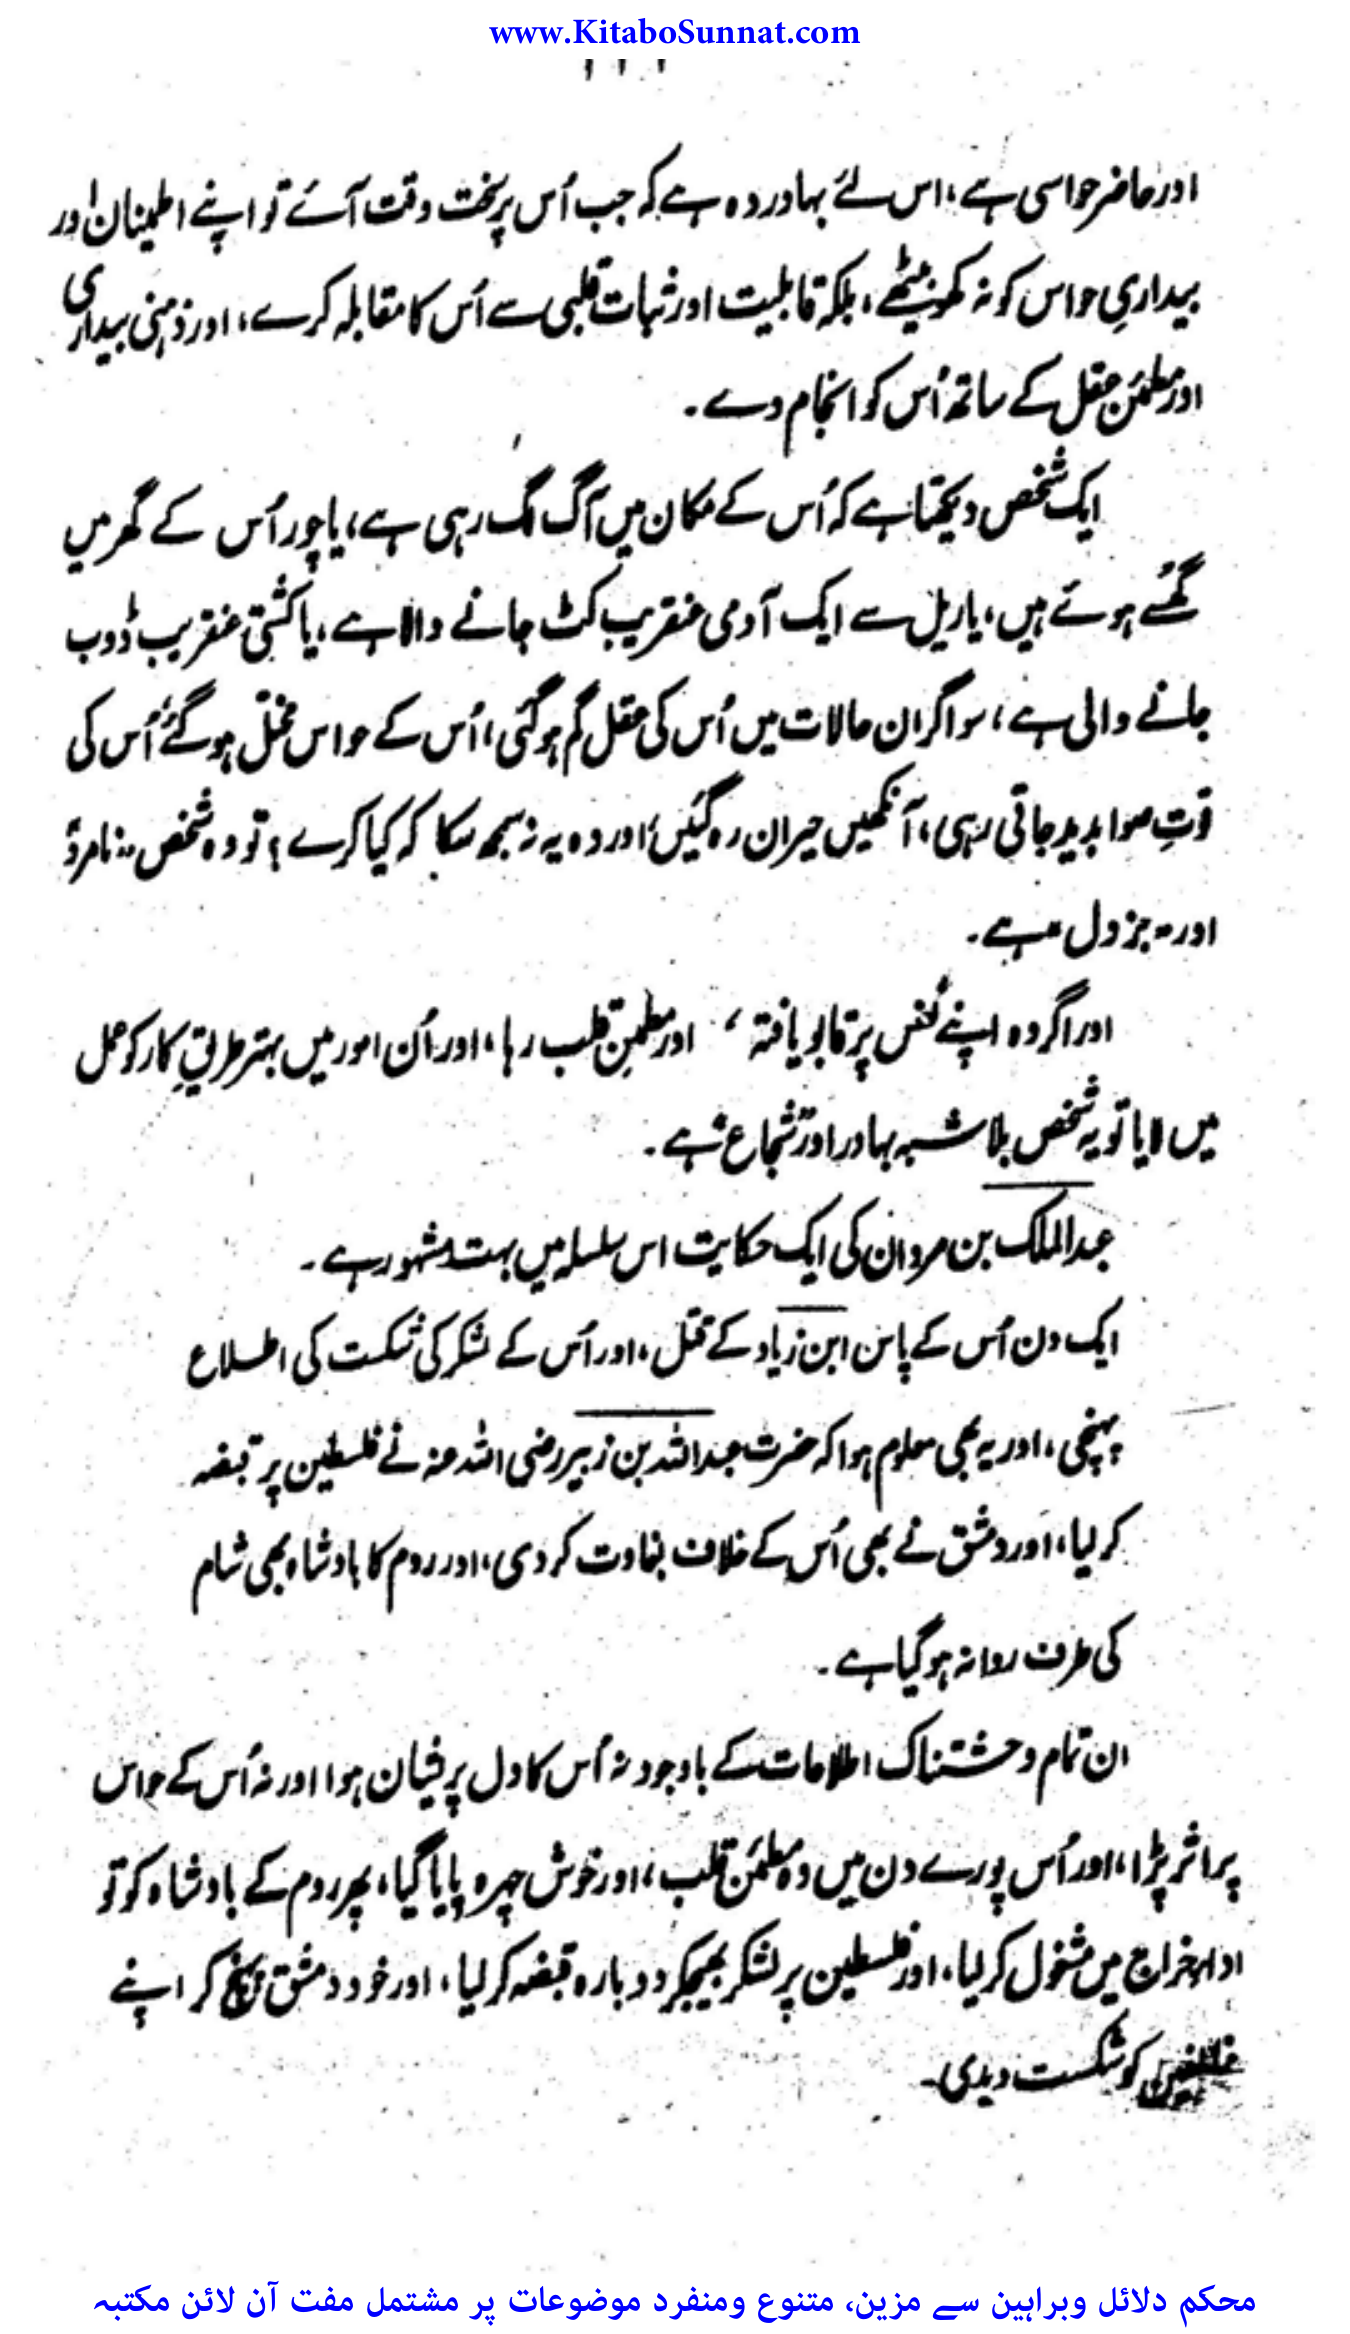 www.KitaboSunnat.com
اور حاضر حواسی ہے، اس لئے بہادر وہ ہے کہ جب اُس پر سخت وقت آئے تو اپنے اطمینان اور
بیداریِ حواس کو نہ کھو بیٹھے، بلکہ قابلیت اور ثبات قلبی سے اُس کا مقابلہ کرے، اور ذہنی بیداری
اور مطمئن عقل کے ساتھ اُس کو انجام دے۔
ایک شخص دیکھتا ہے کہ اُس کے مکان میں آگ لگ رہی ہے، یا چور اُس کے گھر میں
گھُسے ہوئے ہیں، یا ریل سے ایک آدمی عنقریب کٹ جانے والا ہے، یا کشتی عنقریب ڈوب
جانے والی ہے، سو اگر ان حالات میں اُس کی عقل گم ہو گئی، اُس کے حواس مختل ہو گئے اُس کی
قوتِ صوابدید جاتی رہی، آنکھیں حیران رہ گئیں، اور وہ یہ نہ سمجھ سکا کہ کیا کرے؟ تو وہ شخص "نامرد"
اور "بزدل" ہے۔
اور اگر وہ اپنے نفس پر قابو یافتہ، اور مطمئن قلب رہا، اور اُن امور میں بہتر طریقِ کار کو عمل
میں لایا تو یہ شخص بلا شبہ بہادر اور "شجاع" ہے۔
عبدالملک بن مروان کی ایک حکایت اس سلسلہ میں بہت مشہور ہے۔
ایک دن اُس کے پاس ابن زیاد کے قتل، اور اُس کے لشکر کی شکست کی اطلاع
پہنچی، اور یہ بھی معلوم ہوا کہ حضرت عبداللہ بن زبیر رضی اللہ عنہ نے فلسطین پر قبضہ
کر لیا، اور دمشق نے بھی اُس کے خلاف بغاوت کر دی، اور روم کا بادشاہ بھی شام
کی طرف روانہ ہو گیا ہے۔
ان تمام وحشتناک اطلاعات کے باوجود نہ اُس کا دل پریشان ہوا اور نہ اُس کے حواس
پر اثر پڑا، اور اُس پورے دن میں وہ مطمئن قلب، اور خوش چہرہ پایا گیا، پھر روم کے بادشاہ کو تو
اداءِ خراج میں مشغول کر لیا، اور فلسطین پر لشکر بھیجکر دوبارہ قبضہ کر لیا، اور خود دمشق پہنچ کر اپنے
کو شکست دیدی۔
محکم دلائل وبراہین سے مزین، متنوع ومنفرد موضوعات پر مشتمل مفت آن لائن مکتبہ